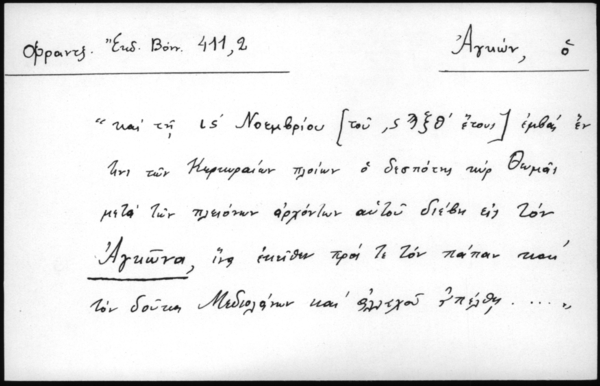 Φραντζ. Ἔκδ. Βόνν. 411,2
Ἀγκών, ὁ
“ καὶ τῇ ις΄ Νοεμβρίου [τοῦ ,ςϠξθ΄ ἔτους] ἐμβὰς ἔν
τινι τῶν Κερκυραίων πλοίων ὁ δεσπότης κὺρ Θωμᾶς
μετὰ τῶν πλειόνων ἀρχόντων αὐτοῦ διέβη εἰς τὸν
Ἀγκῶνα, ἵνα ἐκεῖθεν πρός τε τὸν πάπαν καὶ
τὸν δοῦκα Μεδιολάνων καὶ ἀλλαχοῦ ἀπέλθῃ ..... „